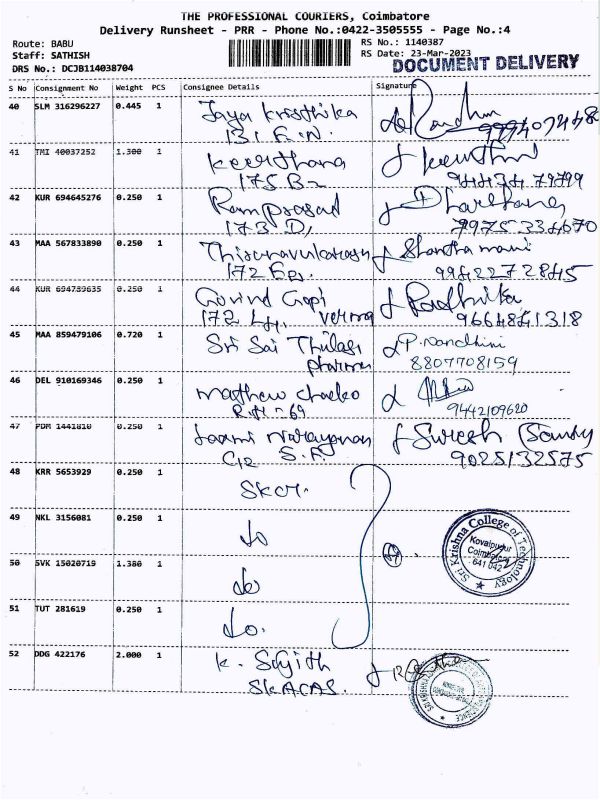 THE PROFESSIONAL COURIERS, Coimbatore
Delivery Runsheet - PRR - Phone No.:0422-3505555 - Page No.:4
Route: BABU
Staff: SATHISH
DRS No.: DCJB114038704
RS No.: 1140387
RS Date: 23-Mar-2023
DOCUMENT DELIVERY
S No Consignment No Weight PCS Consignee Details Signature
40 SLM 316296227 0.445 1 Jaya Kristhika
131 E.N.
41 TMI 40037252 1.300 1 Keerthana
175 B2
42 KUR 694645276 0.250 1 Ramprasad
173 D,
43 MAA 567833890 0.250 1 Shanthamani
172 9942272845
44 KUR 694789635 0.250 1 Govind Gopi Radhika
172 Verma 9664841318
45 MAA 859479106 0.720 1 Sri Sai Thulasi P. Nandhini
pharma 8807708159
46 DEL 910169346 0.250 1 Mathew chacko
69 9442109620
47 PDM 1441810 0.250 1 Narayanan Suresh
C12 S.F. 9025132575
48 KRR 5653929 0.250 1 SKCT.
49 NKL 3156081 0.250 1 do
50 SVK 15020719 1.380 1 do
51 TUT 281619 0.250 1 do.
Sri Krishna College of Technology
Kovaipudur
Coimbatore
641 042
52 DDG 422176 2.000 1 K. Sajith
SKACAS.